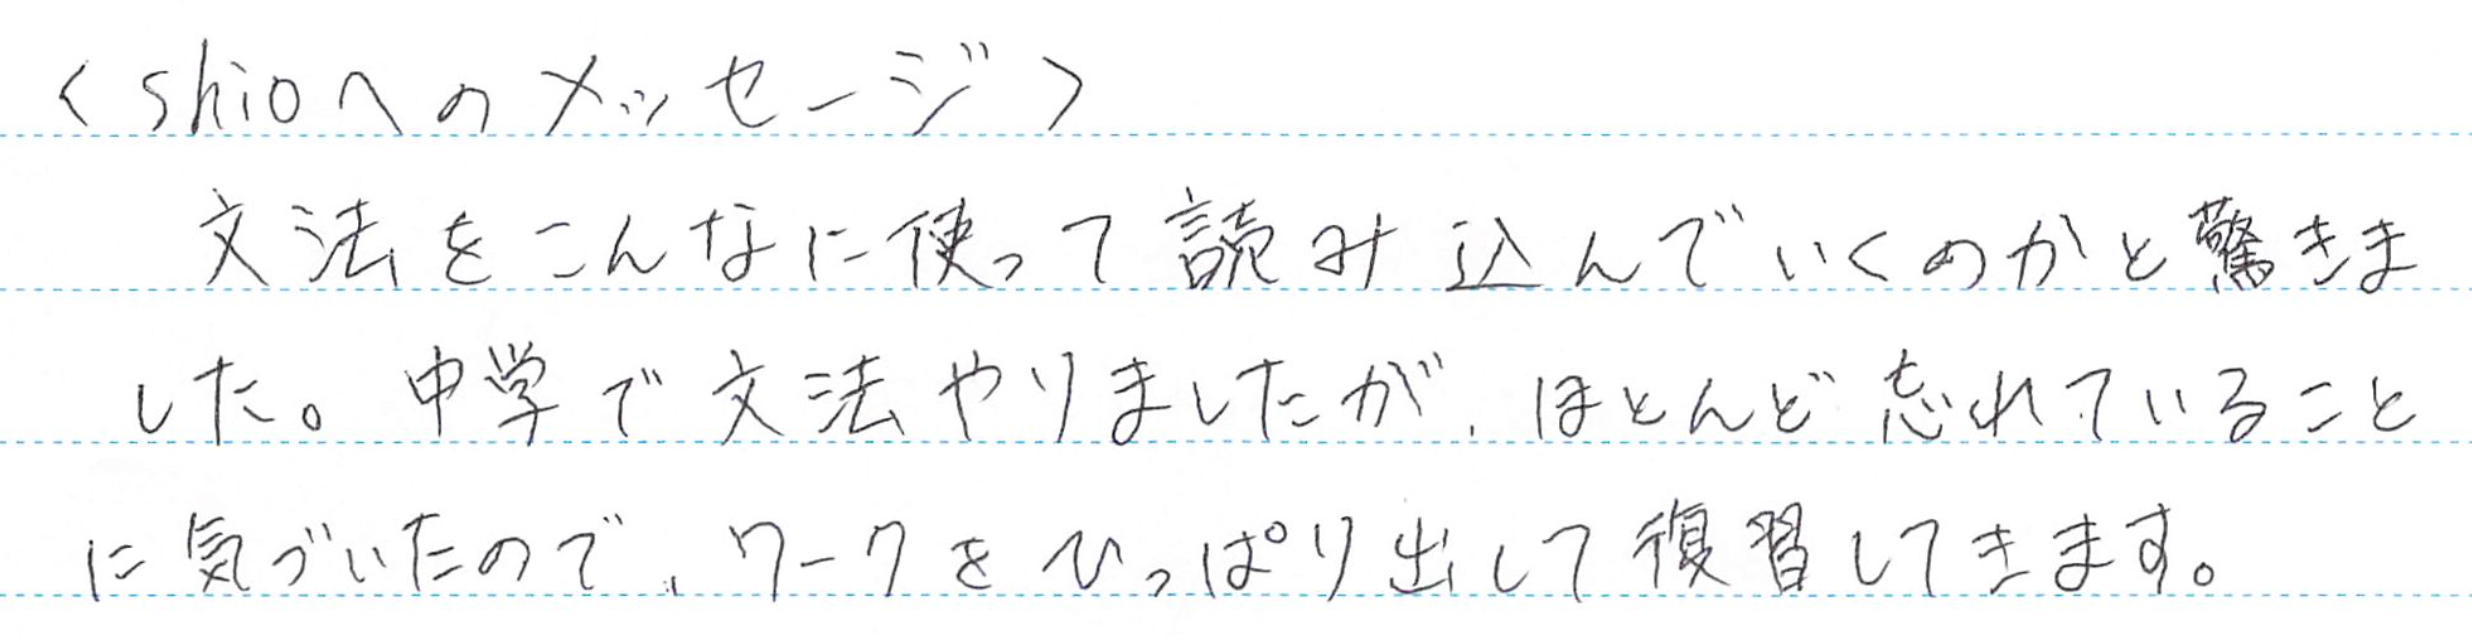 <shioへのメッセージ>
文法をこんなに使って読み込んでいくのかと驚きま
した。中学で文法やりましたが、ほとんど忘れていること
に気づいたので、ワークをひっぱり出して復習してきます。